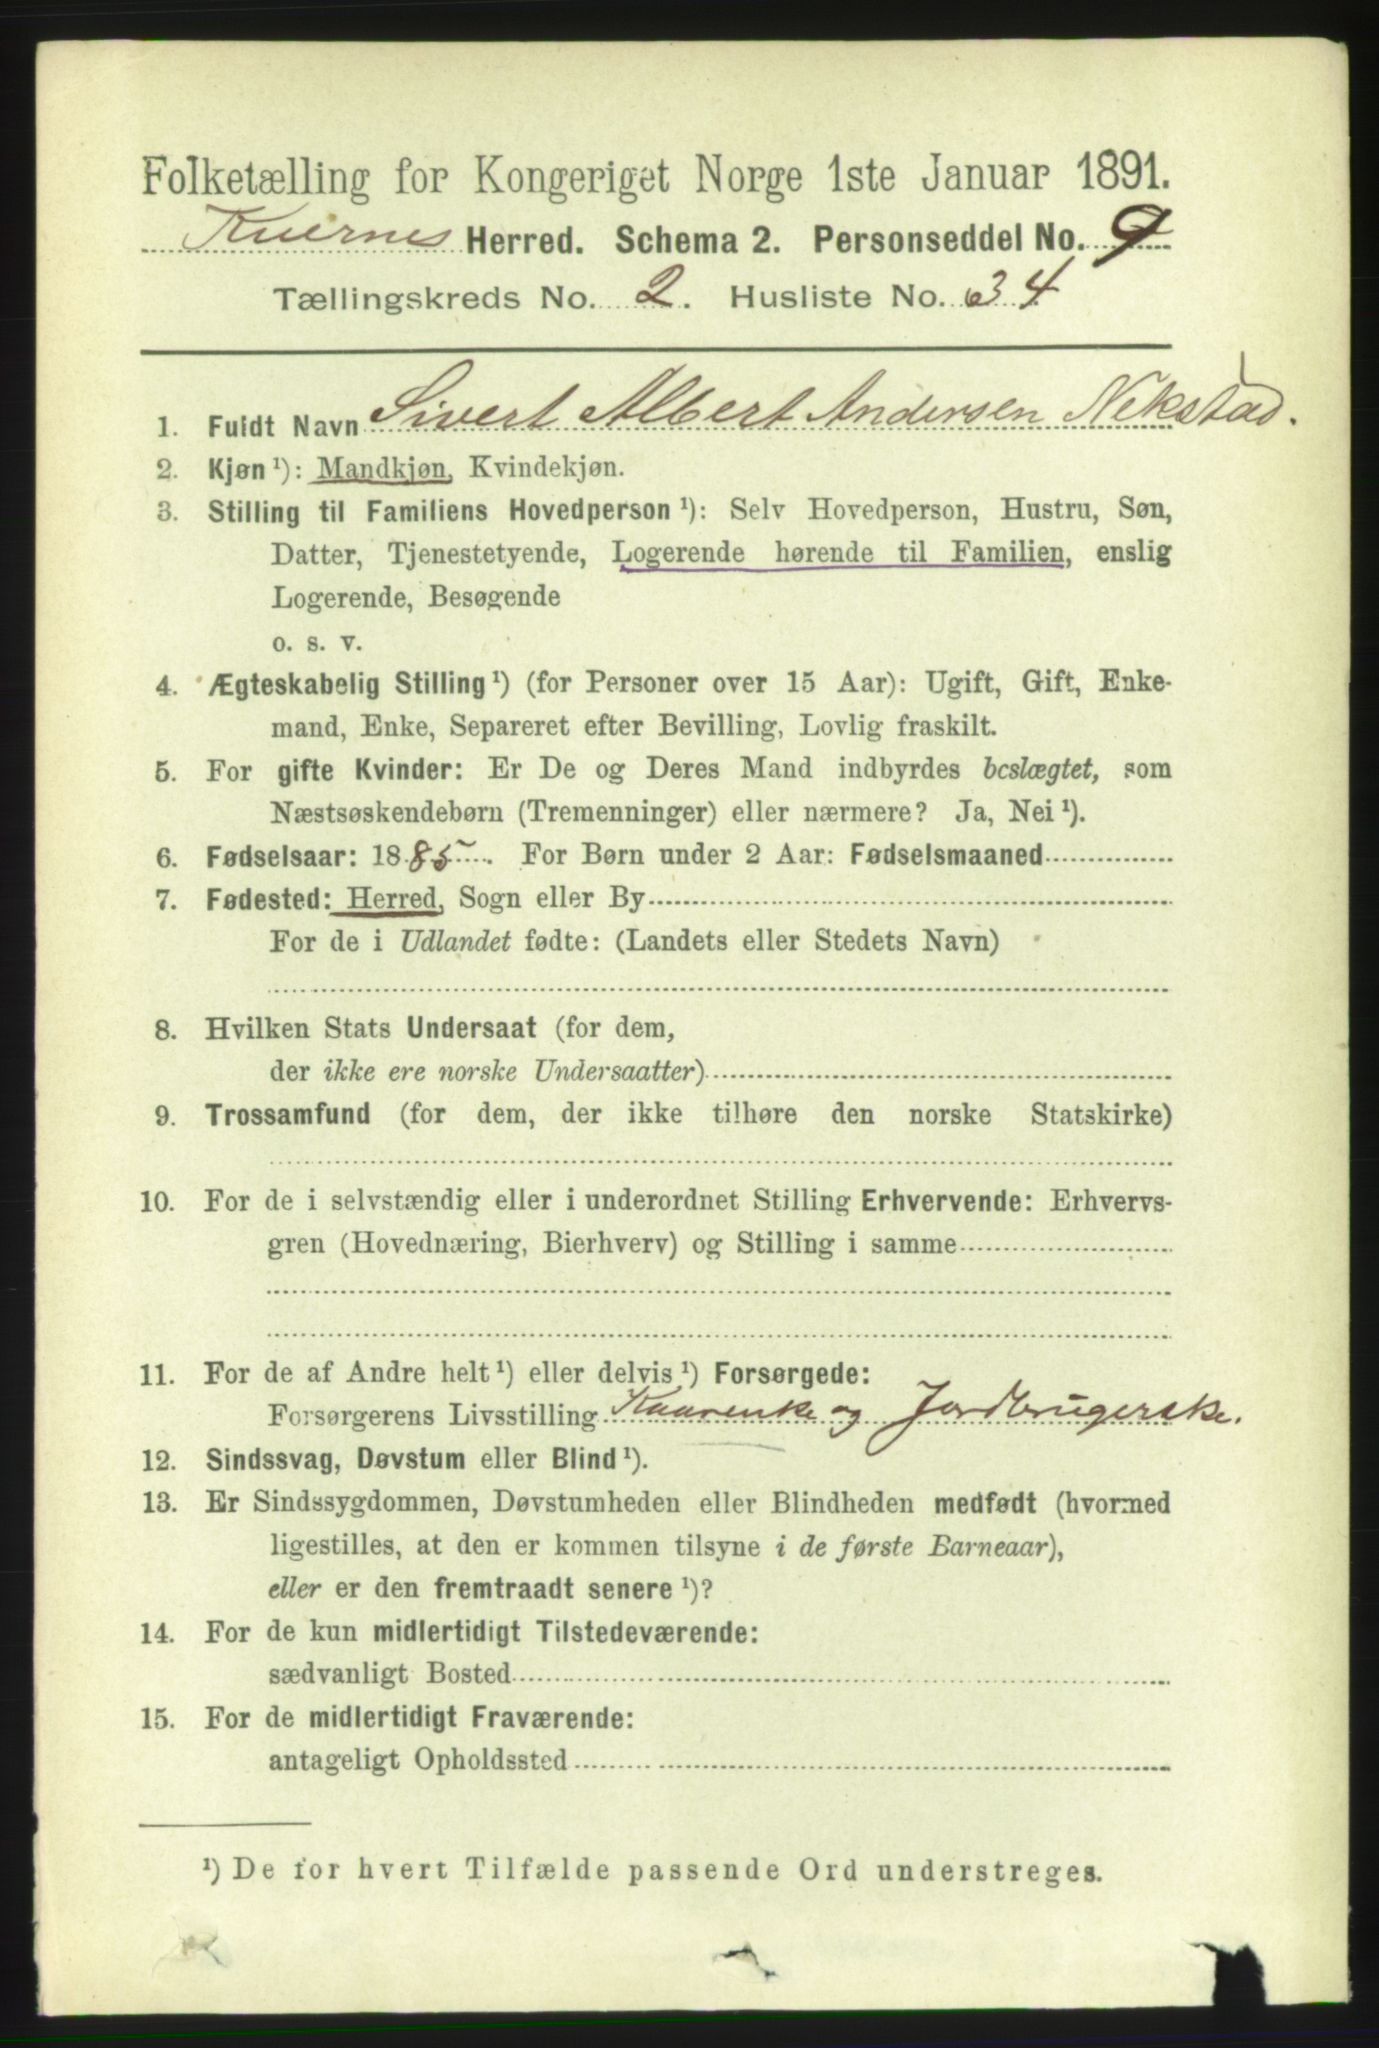 Folketælling for Kongeriget Norge 1ste Januar 1891.
Kvernes Herred. Schema 2. Personseddel No. 9
Tællingskreds No. 2. Husliste No. 34
1. Fuldt Navn Sivert Albert Andersen Nekstad.
2. Kjøn ¹): Mandkjøn, Kvindekjøn.
3. Stilling til Familiens Hovedperson ¹): Selv Hovedperson, Hustru, Søn,
Datter, Tjenestetyende, Logerende hørende til Familien, enslig
Logerende, Besøgende
o. s. v.
4. Ægteskabelig Stilling ¹) (for Personer over 15 Aar): Ugift, Gift, Enke-
mand, Enke, Separeret efter Bevilling, Lovlig fraskilt.
5. For gifte Kvinder: Er De og Deres Mand indbyrdes beslægtet, som
Næstsøskendebørn (Tremenninger) eller nærmere? Ja, Nei ¹).
6. Fødselsaar: 1885. For Børn under 2 Aar: Fødselsmaaned
7. Fødested: Herred, Sogn eller By
For de i Udlandet fødte: (Landets eller Stedets Navn)
8. Hvilken Stats Undersaat (for dem,
der ikke ere norske Undersaatter)
9. Trossamfund (for dem, der ikke tilhøre den norske Statskirke)
10. For de i selvstændig eller i underordnet Stilling Erhvervende: Erhvervs-
gren (Hovednæring, Bierhverv) og Stilling i samme
11. For de af Andre helt ¹) eller delvis ¹) Forsørgede:
Forsørgerens Livsstilling Kaarenke og Jordbrugerske.
12. Sindssvag, Døvstum eller Blind ¹).
13. Er Sindssygdommen, Døvstumheden eller Blindheden medfødt (hvormed
ligestilles, at den er kommen tilsyne i de første Barneaar),
eller er den fremtraadt senere ¹)?
14. For de kun midlertidigt Tilstedeværende:
sædvanligt Bosted
15. For de midlertidigt Fraværende:
antageligt Opholdssted
¹) De for hvert Tilfælde passende Ord understreges.